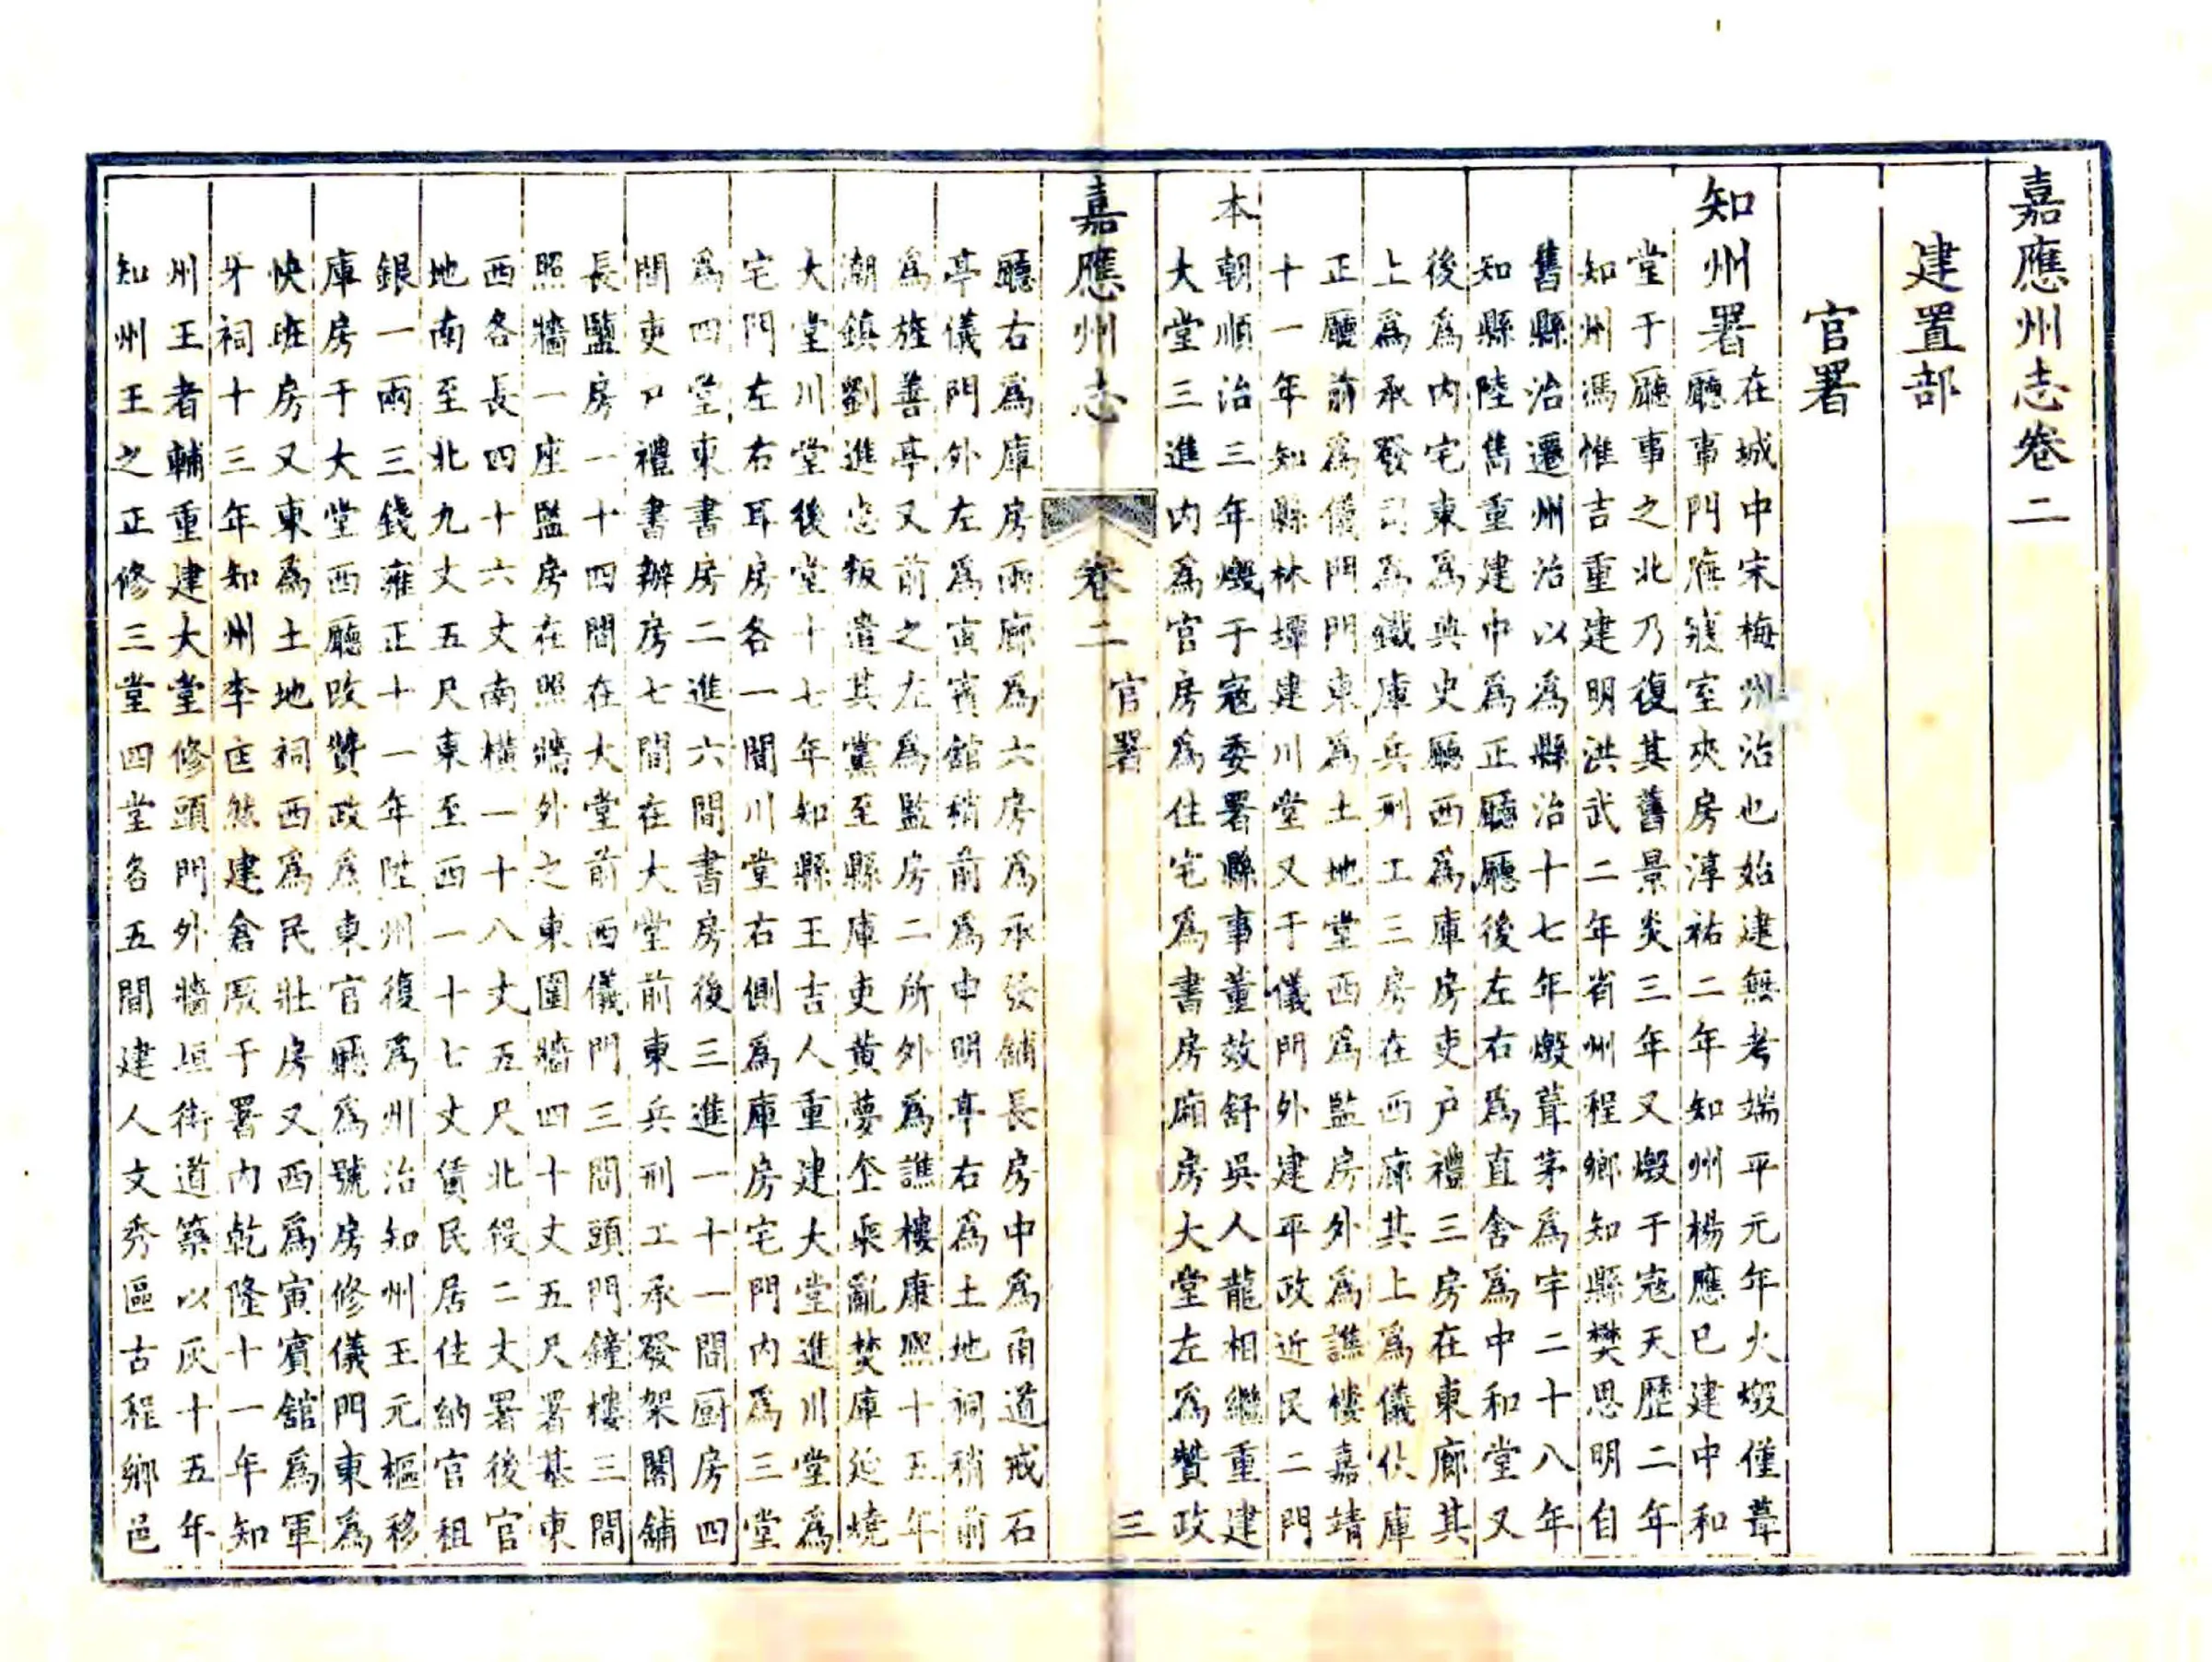 嘉應州志卷二
建置部
官署
知州署
在城中宋梅州治也始建無考端平元年火燬僅葺
廳事門廡寢室夾房淳祐二年知州楊應已建中和
堂于廳事之北乃復其舊景炎三年又燬于寇天歷二年
知州馮惟吉重建明洪武二年省州程鄉知縣樊思明自
舊縣治遷州治以為縣治十七年燬葺茅為宇二十八年
知縣陸雋重建中為正廳廳後左右為直舍為中和堂又
後為內宅東為典史廳西為庫房吏户禮三房在東廊其
上為承發司為鐵庫兵刑工三房在西廊其上為儀仗庫
正廳前為儀門門東為土地堂西為監房外為譙樓嘉靖
十一年知縣林墿建川堂又于儀門外建平政近民二門
本朝順治三年燬于寇委署縣事董效舒吳人龍相繼重建
大堂三進內為官房為住宅為書房廂房大堂左為贊政
嘉應州志
卷二
官署
三
廳右為庫房兩廊為六房為承發舖長房中為甬道戒石
亭儀門外左為寅賓館稍前為申明亭右為土地祠稍前
為旌善亭又前之左為監房二所外為譙樓康熙十五年
潮鎮劉進忠叛遣其黨至縣庫吏黃夢夆乘亂焚庫延燒
大堂川堂後堂十七年知縣王吉人重建大堂進川堂為
宅門左右耳房各一間川堂右側為庫房宅門內為三堂
為四堂東書房二進六間書房後三進一十一間厨房四
間吏户禮書辦房七間在大堂前東兵刑工承發架閣舖
長監房一十四間在大堂前西儀門三間頭門鐘樓三間
照牆一座監房在照牆外之東圍牆四十丈五尺署基東
西各長四十六丈南橫一十八丈五尺北後二丈署後官
地南至北九丈五尺東至西一十七丈賃民居住納官租
銀一兩三錢雍正十一年陞州復為州治知州王元樞移
庫房于大堂西廳改贊政為東官廳為號房修儀門東為
快班房又東為土地祠西為民壯房又西為寅賓舘為軍
牙祠十三年知州李匡然建倉厫于署內乾隆十一年知
州王者輔重建大堂修頭門外牆垣街道築以灰十五年
知州王之正修三堂四堂各五間建人文秀區古程鄉邑